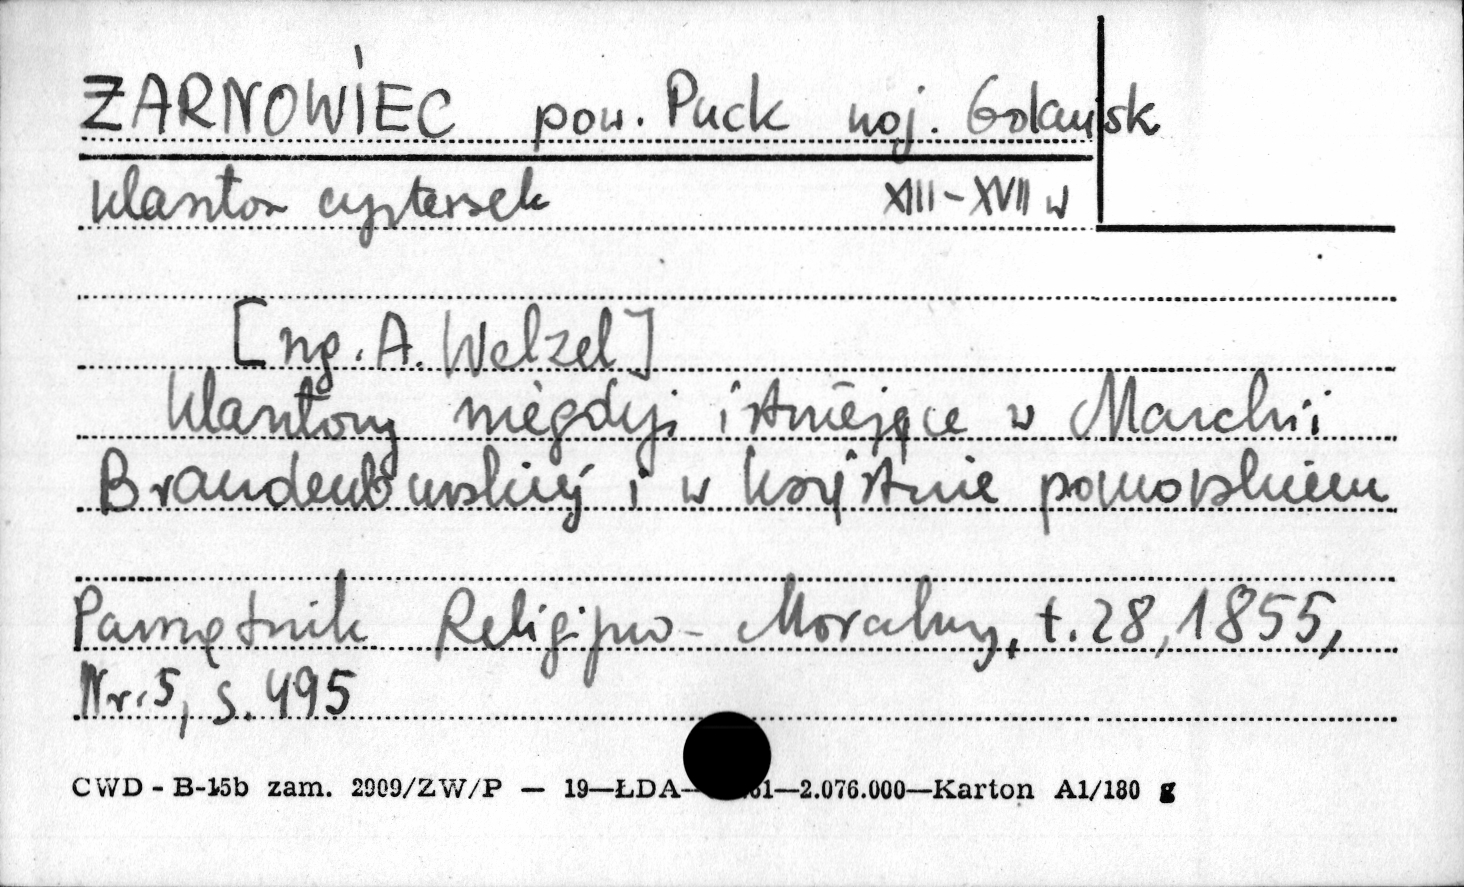 ŻARNOWIEC pow. Puck woj. Gdańsk
klasztor cysterek XIII-XVII w
[ng. A. Welzel]
Klasztory niegdyś istniejące w Marchii
Brandenburskiej i w księstwie pomorskiem
Pamiętnik Religijno-Moralny, t. 28, 1855,
Nr. 5, s. 495
CWD - B-15b zam. 2909/ZW/P — 19—ŁDA— 61—2.076.000—Karton A1/180 g